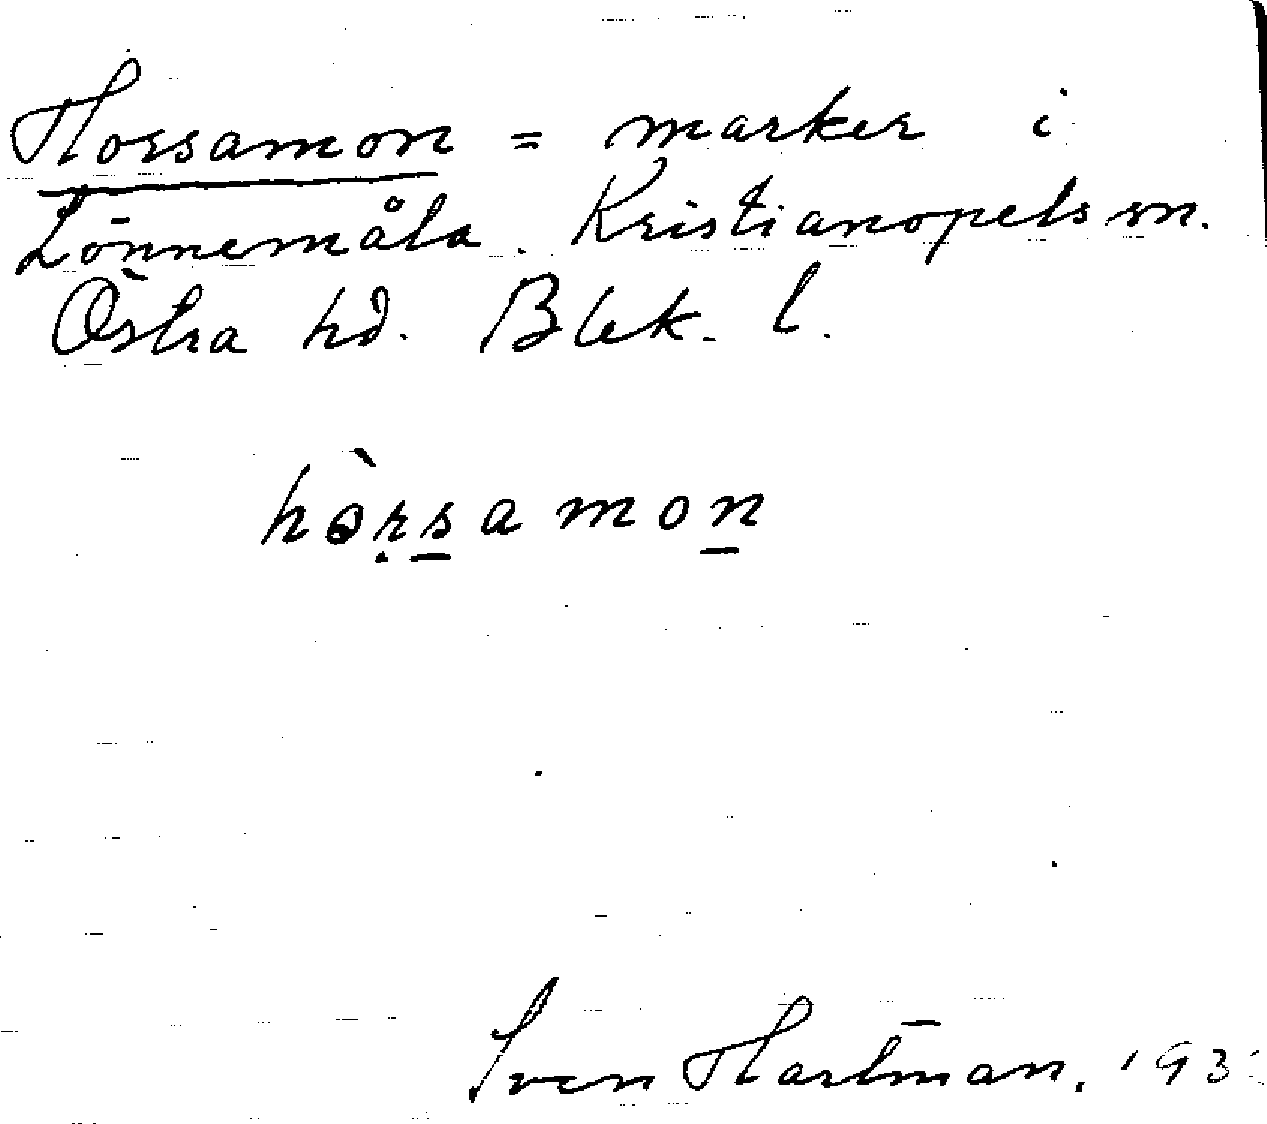 Horsamon = marker i
Lönnemåla. Kristianopels sn.
Östra hd. Blek. l.
hòrsamon
Sven Hartman. 193